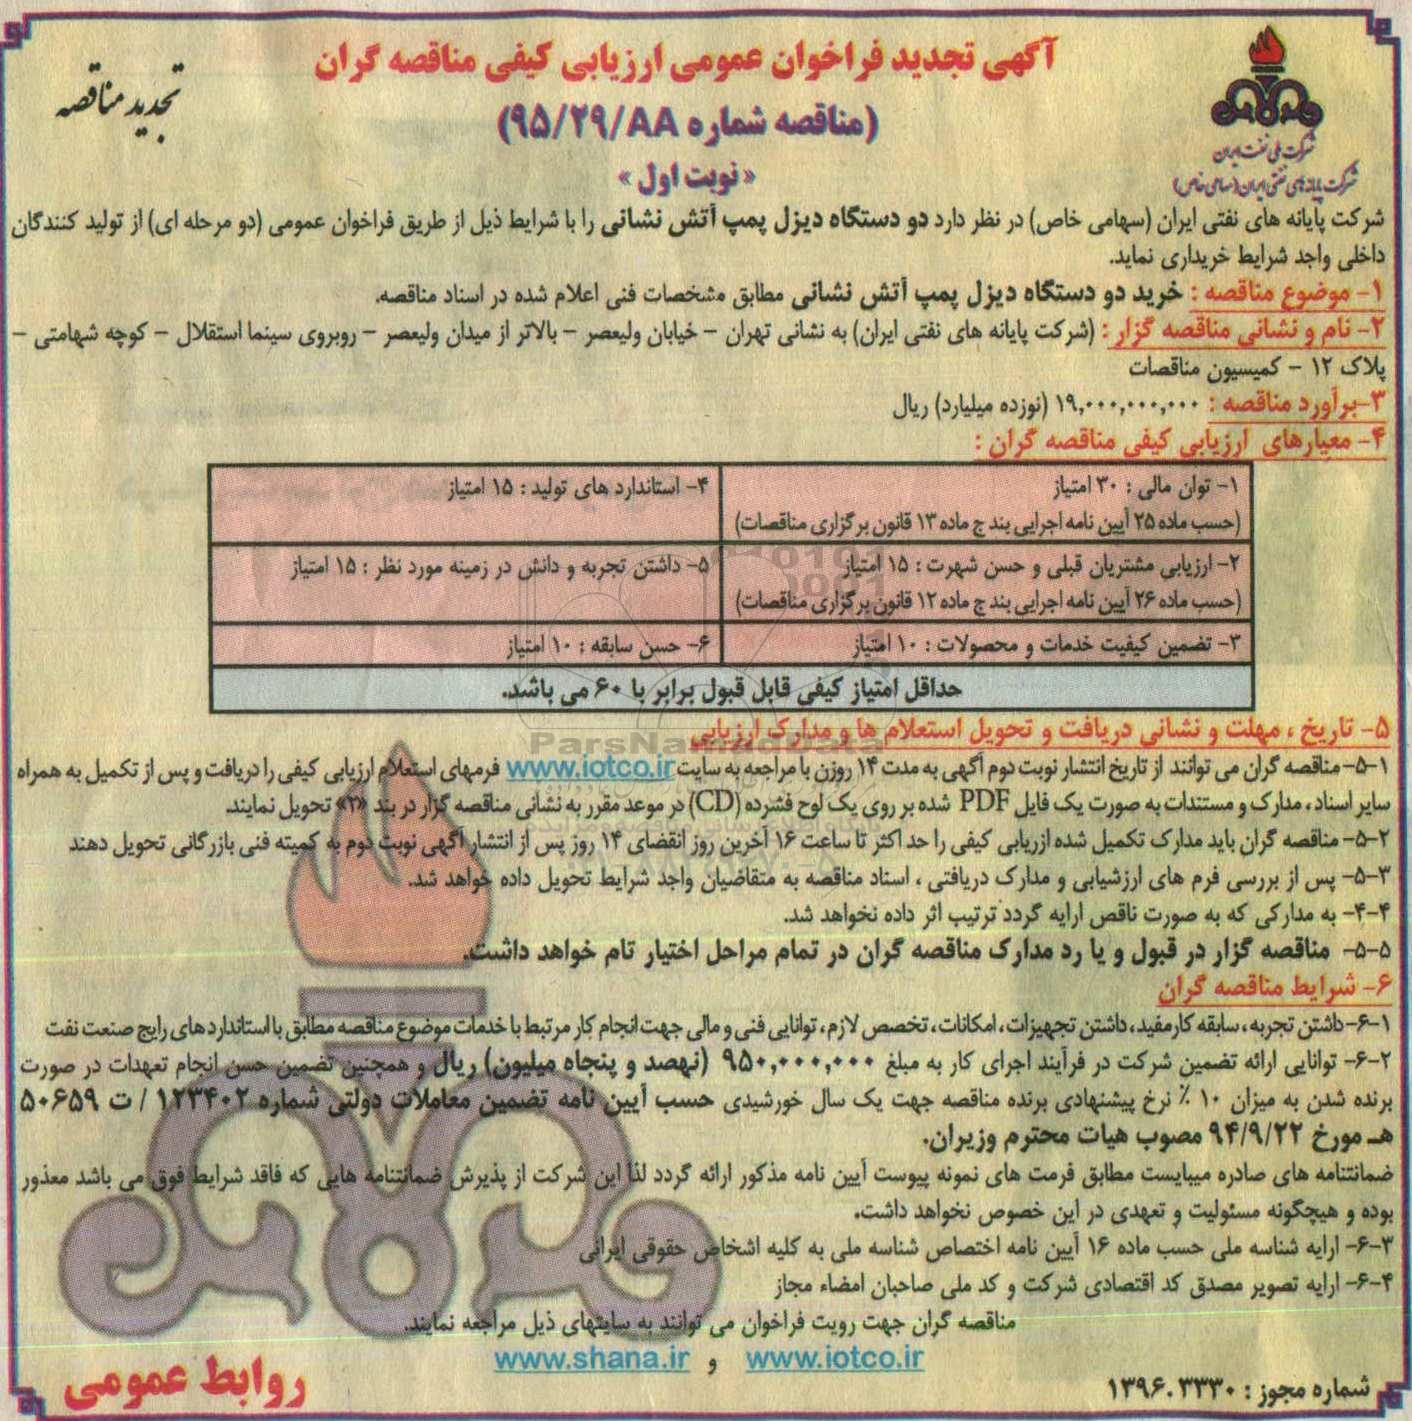 آگهی تجدید فراخوان عمومی ارزیابی کیفی مناقصه گران
(مناقصه شماره ۹۵/۲۹/AA)
«نوبت اول»
تجدید مناقصه
شرکت ملی نفت ایران
شرکت پایانه های نفتی ایران (سهامی خاص)
شرکت پایانه های نفتی ایران (سهامی خاص) در نظر دارد دو دستگاه دیزل پمپ آتش نشانی را با شرایط ذیل از طریق فراخوان عمومی (دو مرحله ای) از تولید کنندگان
داخلی واجد شرایط خریداری نماید.
۱- موضوع مناقصه : خرید دو دستگاه دیزل پمپ آتش نشانی مطابق مشخصات فنی اعلام شده در اسناد مناقصه.
۲- نام و نشانی مناقصه گزار : (شرکت پایانه های نفتی ایران) به نشانی تهران – خیابان ولیعصر – بالاتر از میدان ولیعصر – روبروی سینما استقلال – کوچه شهامتی –
پلاک ۱۲ – کمیسیون مناقصات
۳-برآورد مناقصه : ۱۹,۰۰۰,۰۰۰,۰۰۰ (نوزده میلیارد) ریال
۴- معیارهای ارزیابی کیفی مناقصه گران :
۱- توان مالی : ۳۰ امتیاز
(حسب ماده ۲۵ آیین نامه اجرایی بند ج ماده ۱۳ قانون برگزاری مناقصات)
۴- استاندارد های تولید : ۱۵ امتیاز
۲- ارزیابی مشتریان قبلی و حسن شهرت : ۱۵ امتیاز
(حسب ماده ۲۶ آیین نامه اجرایی بند ج ماده ۱۲ قانون برگزاری مناقصات)
۵- داشتن تجربه و دانش در زمینه مورد نظر : ۱۵ امتیاز
۳- تضمین کیفیت خدمات و محصولات : ۱۰ امتیاز
۶- حسن سابقه : ۱۰ امتیاز
حداقل امتیاز کیفی قابل قبول برابر با ۶۰ می باشد.
ParsNamadData
۵- تاریخ ، مهلت و نشانی دریافت و تحویل استعلام ها و مدارک ارزیابی
۵-۱- مناقصه گران می توانند از تاریخ انتشار نوبت دوم آگهی به مدت ۱۴ روزن با مراجعه به سایت www.iotco.ir فرمهای استعلام ارزیابی کیفی را دریافت و پس از تکمیل به همراه
سایر اسناد ، مدارک و مستندات به صورت یک فایل PDF شده بر روی یک لوح فشرده (CD) در موعد مقرر به نشانی مناقصه گزار در بند «۲» تحویل نمایند.
۵-۲- مناقصه گران باید مدارک تکمیل شده ازریابی کیفی را حداکثر تا ساعت ۱۶ آخرین روز انقضای ۱۴ روز پس از انتشار آگهی نوبت دوم به کمیته فنی بازرگانی تحویل دهند
۵-۳- پس از بررسی فرم های ارزشیابی و مدارک دریافتی ، اسناد مناقصه به متقاضیان واجد شرایط تحویل داده خواهد شد.
۴-۴- به مدارکی که به صورت ناقص ارایه گردد ترتیب اثر داده نخواهد شد.
۵-۵- مناقصه گزار در قبول و یا رد مدارک مناقصه گران در تمام مراحل اختیار تام خواهد داشت.
۶- شرایط مناقصه گران
۶-۱-داشتن تجربه، سابقه کار مفید، داشتن تجهیزات، امکانات، تخصص لازم، توانایی فنی و مالی جهت انجام کار مرتبط با خدمات موضوع مناقصه مطابق با استانداردهای رایج صنعت نفت
۶-۲- توانایی ارائه تضمین شرکت در فرآیند اجرای کار به مبلغ ۹۵۰,۰۰۰,۰۰۰ (نهصد و پنجاه میلیون) ریال و همچنین تضمین حسن انجام تعهدات در صورت
برنده شدن به میزان ۱۰ ٪ نرخ پیشنهادی برنده مناقصه جهت یک سال خورشیدی حسب آیین نامه تضمین معاملات دولتی شماره ۱۲۳۴۰۲ / ت ۵۰۶۵۹
هـ مورخ ۹۴/۹/۲۲ مصوب هیات محترم وزیران.
ضمانتنامه های صادره میبایست مطابق فرمت های نمونه پیوست آیین نامه مذکور ارائه گردد لذا این شرکت از پذیرش ضمانتنامه هایی که فاقد شرایط فوق می باشد معذور
بوده و هیچگونه مسئولیت و تعهدی در این خصوص نخواهد داشت.
۶-۳- ارایه شناسه ملی حسب ماده ۱۶ آیین نامه اختصاص شناسه ملی به کلیه اشخاص حقوقی ایرانی
۶-۴- ارایه تصویر مصدق کد اقتصادی شرکت و کد ملی صاحبان امضاء مجاز
مناقصه گران جهت رویت فراخوان می توانند به سایتهای ذیل مراجعه نمایند.
www.iotco.ir و www.shana.ir
شماره مجوز : ۱۳۹۶.۳۳۳۰
روابط عمومی